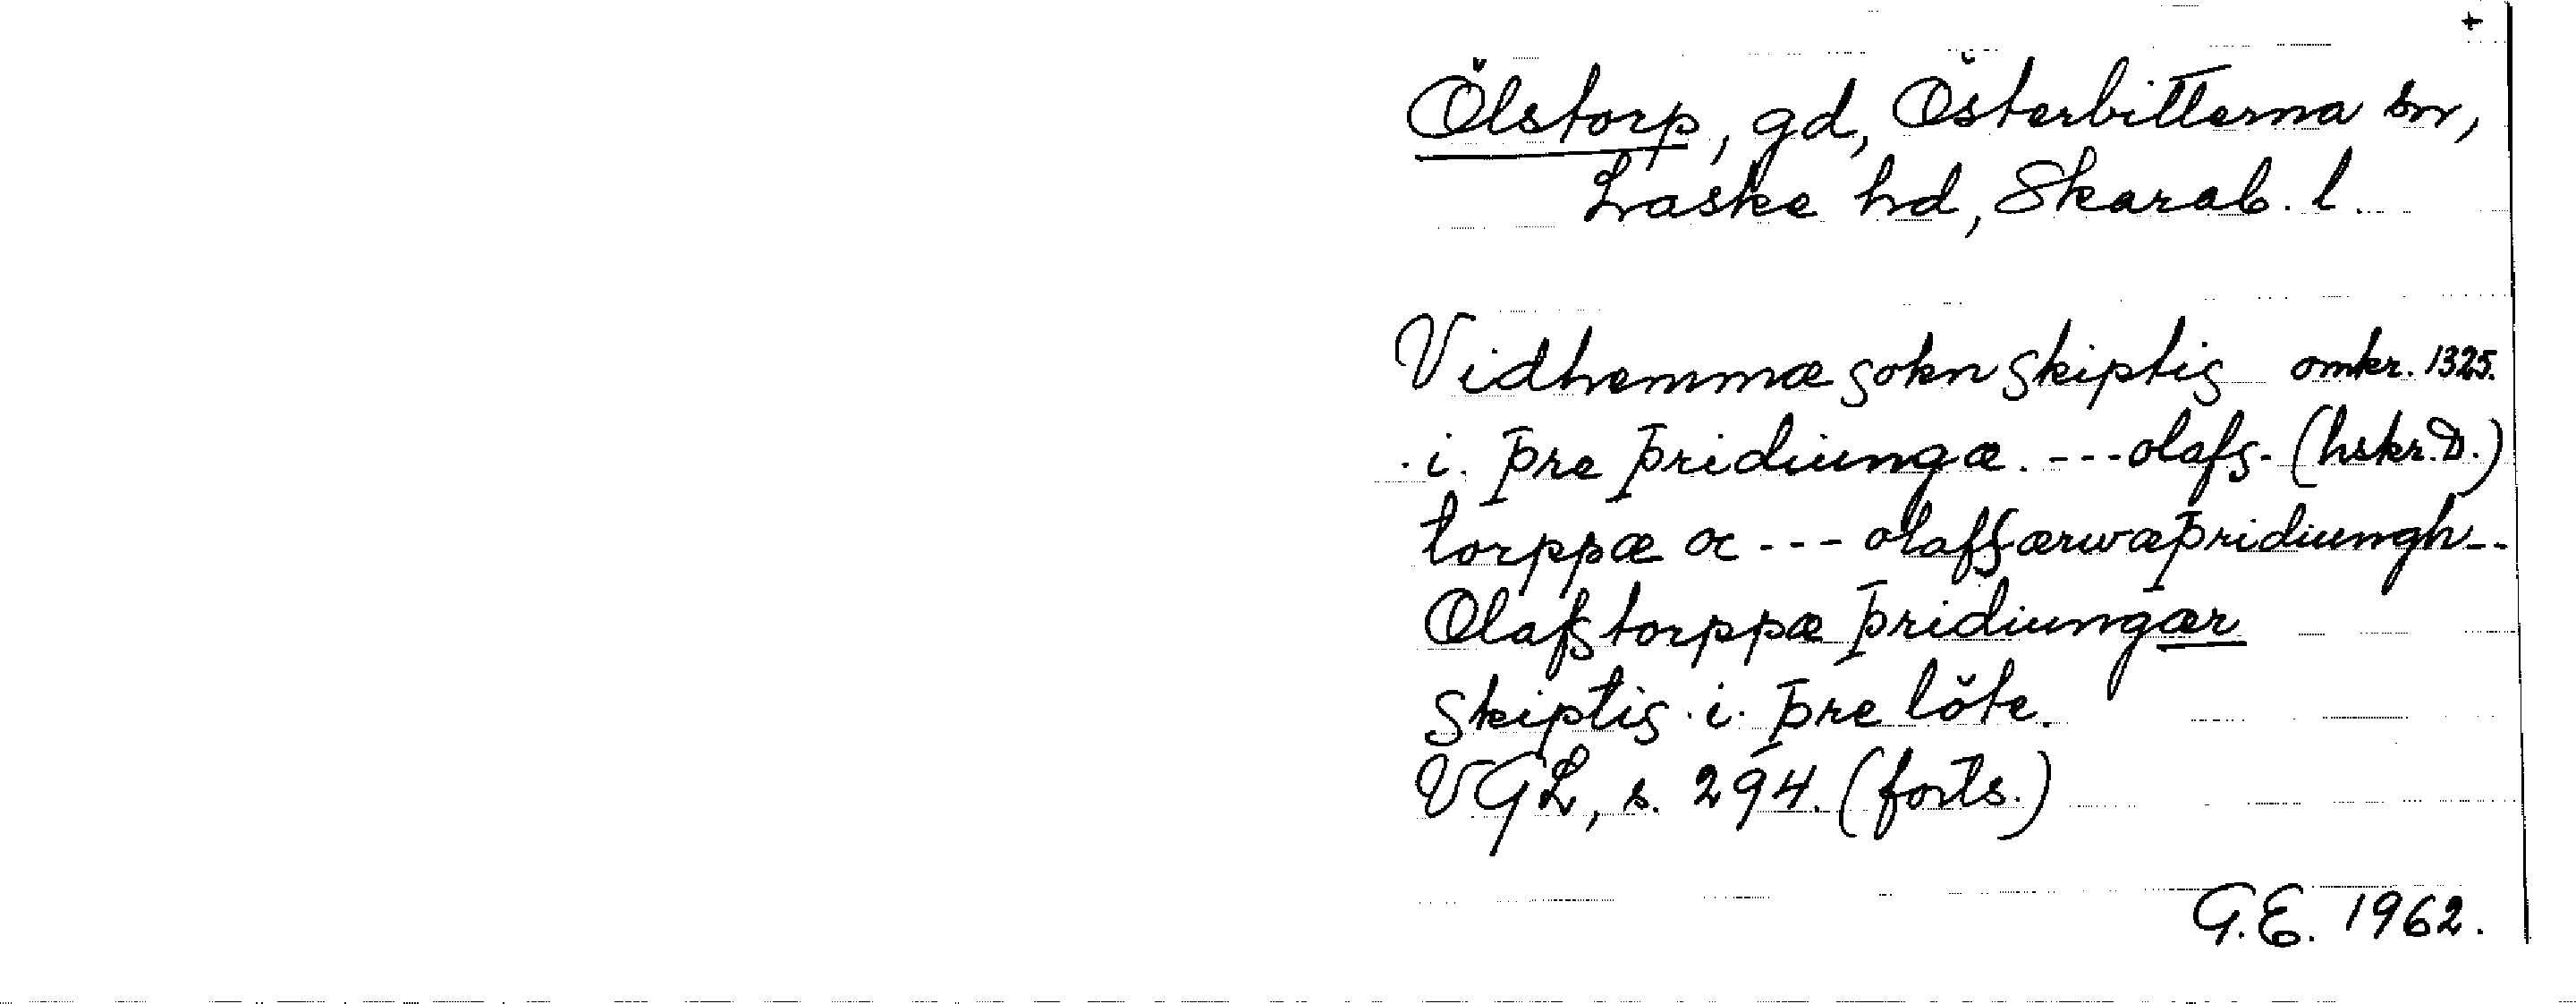 +
Ölstorp, gd, Österbitterna sn,
Laske hd, Skarab. l.
Vidhemmæ sokn skiptis omkr. 1325.
.i. þre þridiungæ. --- olafs- (hskr. D.)
torppæ oc --- olafsærwæþridiungh--
Olafstorppæ þridiungær
skiptis .i. þre löte.
VGL, s. 294. (forts.)
G.E. 1962.